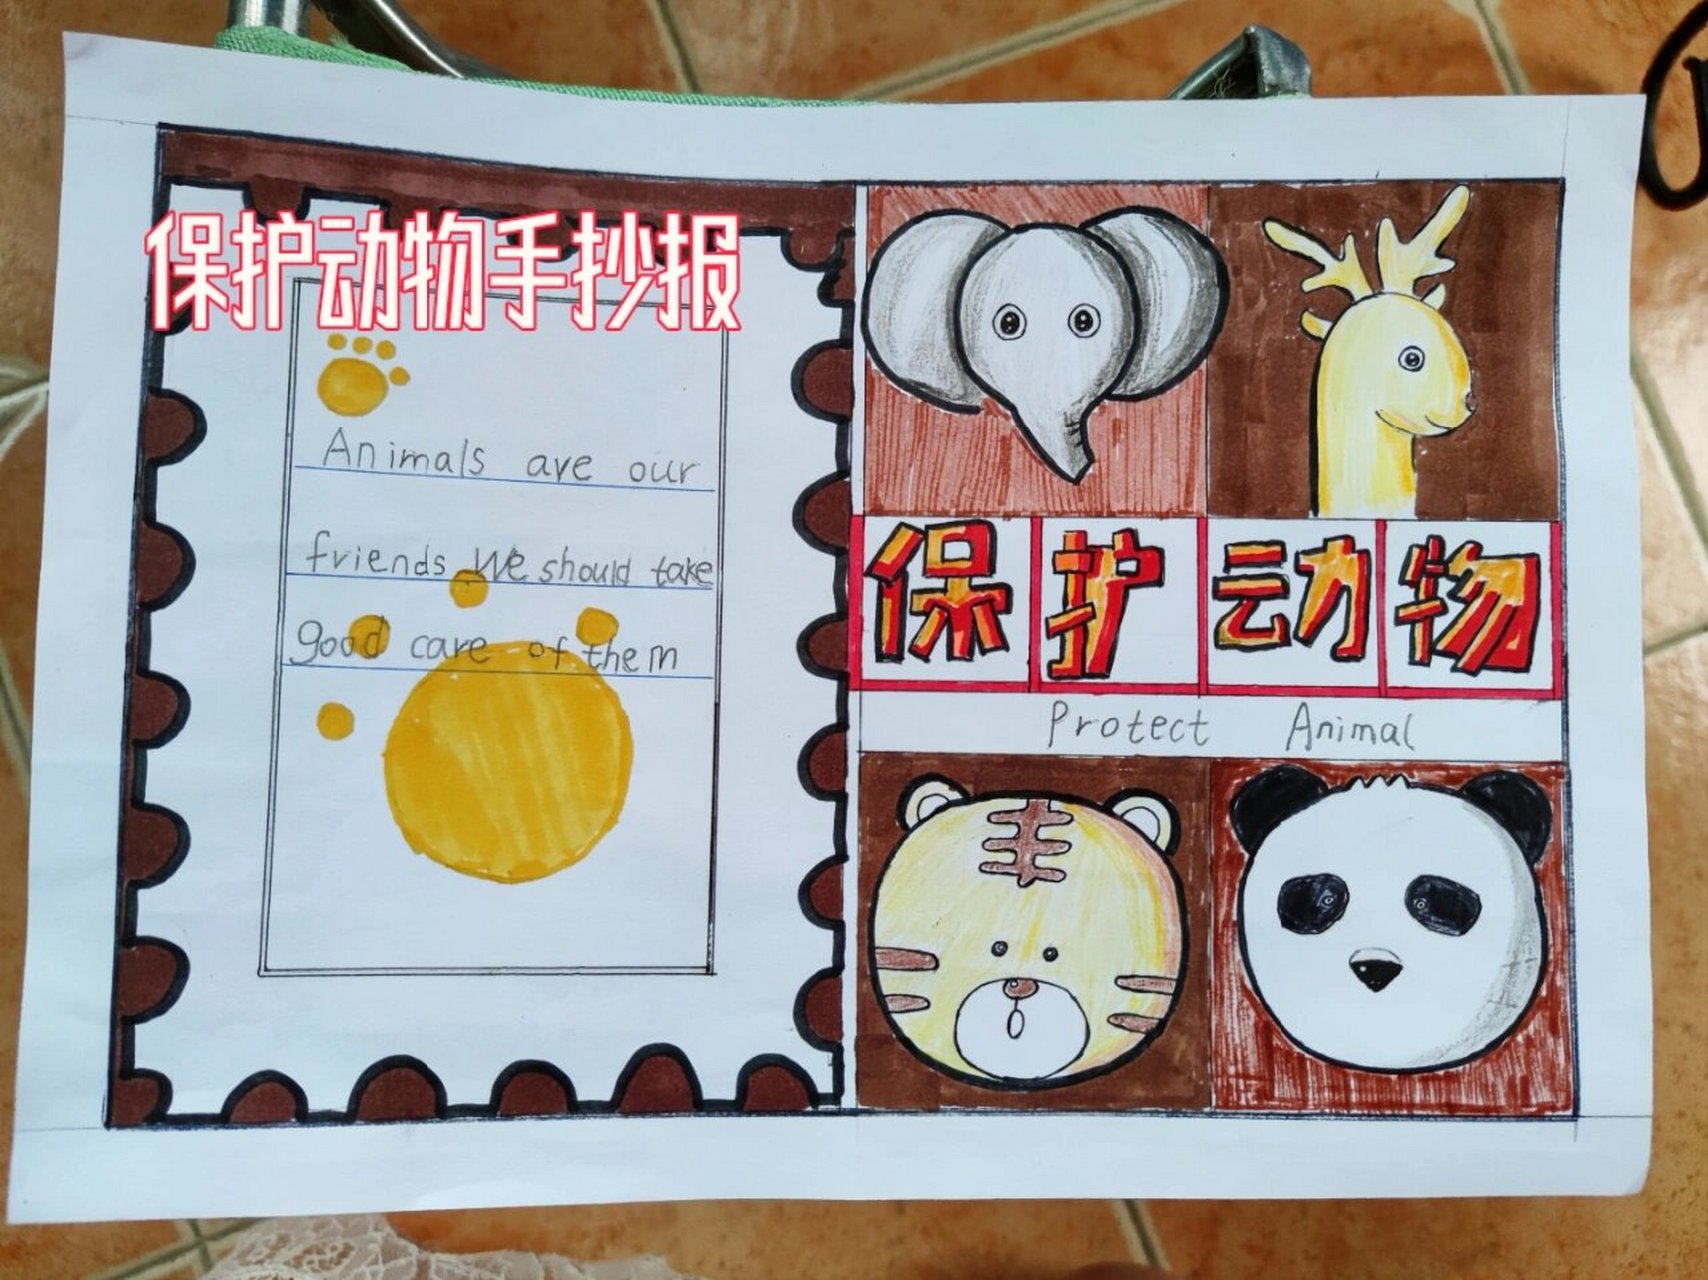 保护动物手抄报
Animals are our
friends We should take
good care of them
保护动物
Protect Animal